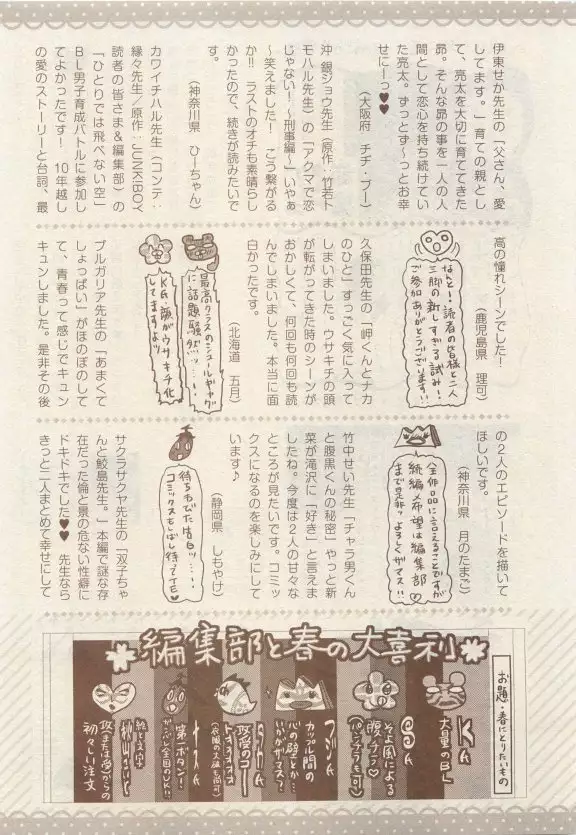 伊東せか先生の「父さん、愛
してます。」育ての親とし
て、亮太を大切に育ててきた
昴。そんな昴の事を一人の人
間として恋心を持ち続けてい
た亮太。ずっとず〜っとお幸
せにーっ♥♥
(大阪府　チヂ・ブー)
沖 銀ジョウ先生(原作:竹若ト
モハル先生)の「アクマで恋
じゃない!〜刑事編〜」いやぁ
〜笑えました!　こう繋がる
か!!　ラストのオチも素晴らし
かったので、続きが読みたいで
す。
(神奈川県　ひーちゃん)
カワイチハル先生(コンテ:
縁々先生/原作:JUNKIBOY
読者の皆さま&編集部)の
「ひとりでは飛べない空」
BL男子育成バトルに参加し
てよかったです!　10年越し
の愛のストーリーと台詞、最
高の憧れシーンでした!
(鹿児島県　理可)
なんと!・読者の皆様と二人
三脚の新しすぎる試み!
ご参加ありがとうございます!!
久保田先生の「岬くんとナカ
のひと」すっごく気に入って
しまいました。ウサキチの頭
が転がってきた時のシーンが
おかしくて、何回も何回も読
んでしまいました。本当に面
白かったです。
(北海道　五月)
最高クラスのシュールギャグ
に話題騒然ッ…!
Kさん・顔がウサキチ化
してますよッ
ブルガリア先生の「あまくて
しょっぱい」がほのぼのして
て、青春って感じでキュン
キュンしました。是非その後
の2人のエピソードを描いて
ほしいです。
(神奈川県　月のたまご)
全作品に言えることですが
続編希望は編集部
まで是非っよろしくザマス!!
竹中せい先生「チャラ男くん
と腹黒くんの秘密」やっと新
菜が滝沢に「好き」と言えま
したね。今度は2人の甘々な
ところが見たいです。コミッ
クスになるのを楽しみにして
います♪
(静岡県　しもやけ)
待ちわびた告白ッ…!
コミックスもしばし待ってTE♥
サクラサクヤ先生の「双子ちゃ
んと鮫島先生。」本編で謎な存
在だった倫と景の危ない性癖に
ドキドキでした♥♥　先生なら
きっと二人まとめて幸せにして
編集部と春の大喜利
お題・春にとりたいもの
Kさん
大量のBL
Sさん
そよ風による
腹チラ♡
(パンチラも可)
カップル間の
心の壁とか…
いかがザマス?
攻受のコート
(衣服の大破も尚可)
第二ボタン!
がっぷし全国のDK!!
絵と文字
攻(または受)からの
初々しい注文